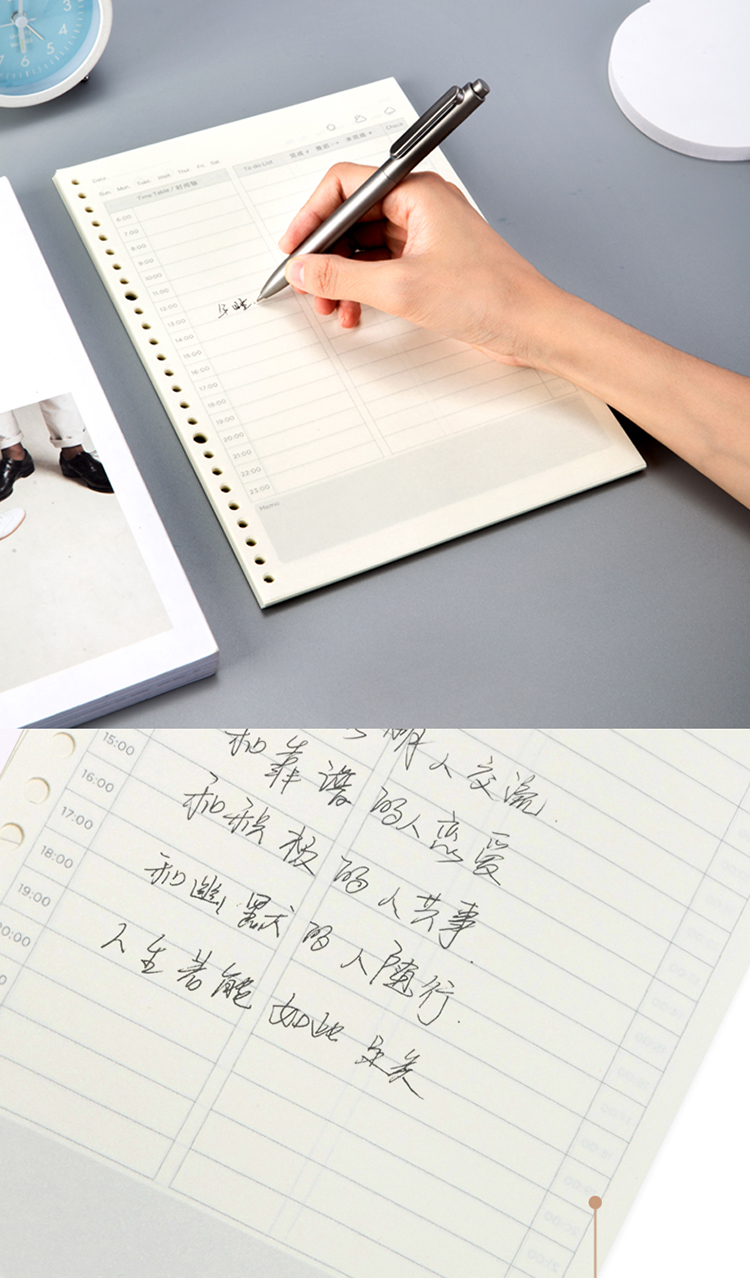 3
4
5
6
Date
Sun Mon Tues Wed Thur Fri Sat
Time Table / 时间轴
To do List 完成 √ 推迟 → 未完成 × Check
6:00
7:00
8:00
9:00
10:00
11:00
12:00
13:00
14:00
15:00
16:00
17:00
18:00
19:00
20:00
21:00
22:00
23:00
Memo
15:00
16:00
17:00
18:00
19:00
20:00
明人交流
和靠谱的人恋爱
和积极的人共事
和幽默的人随行.
人生若能如此 实美